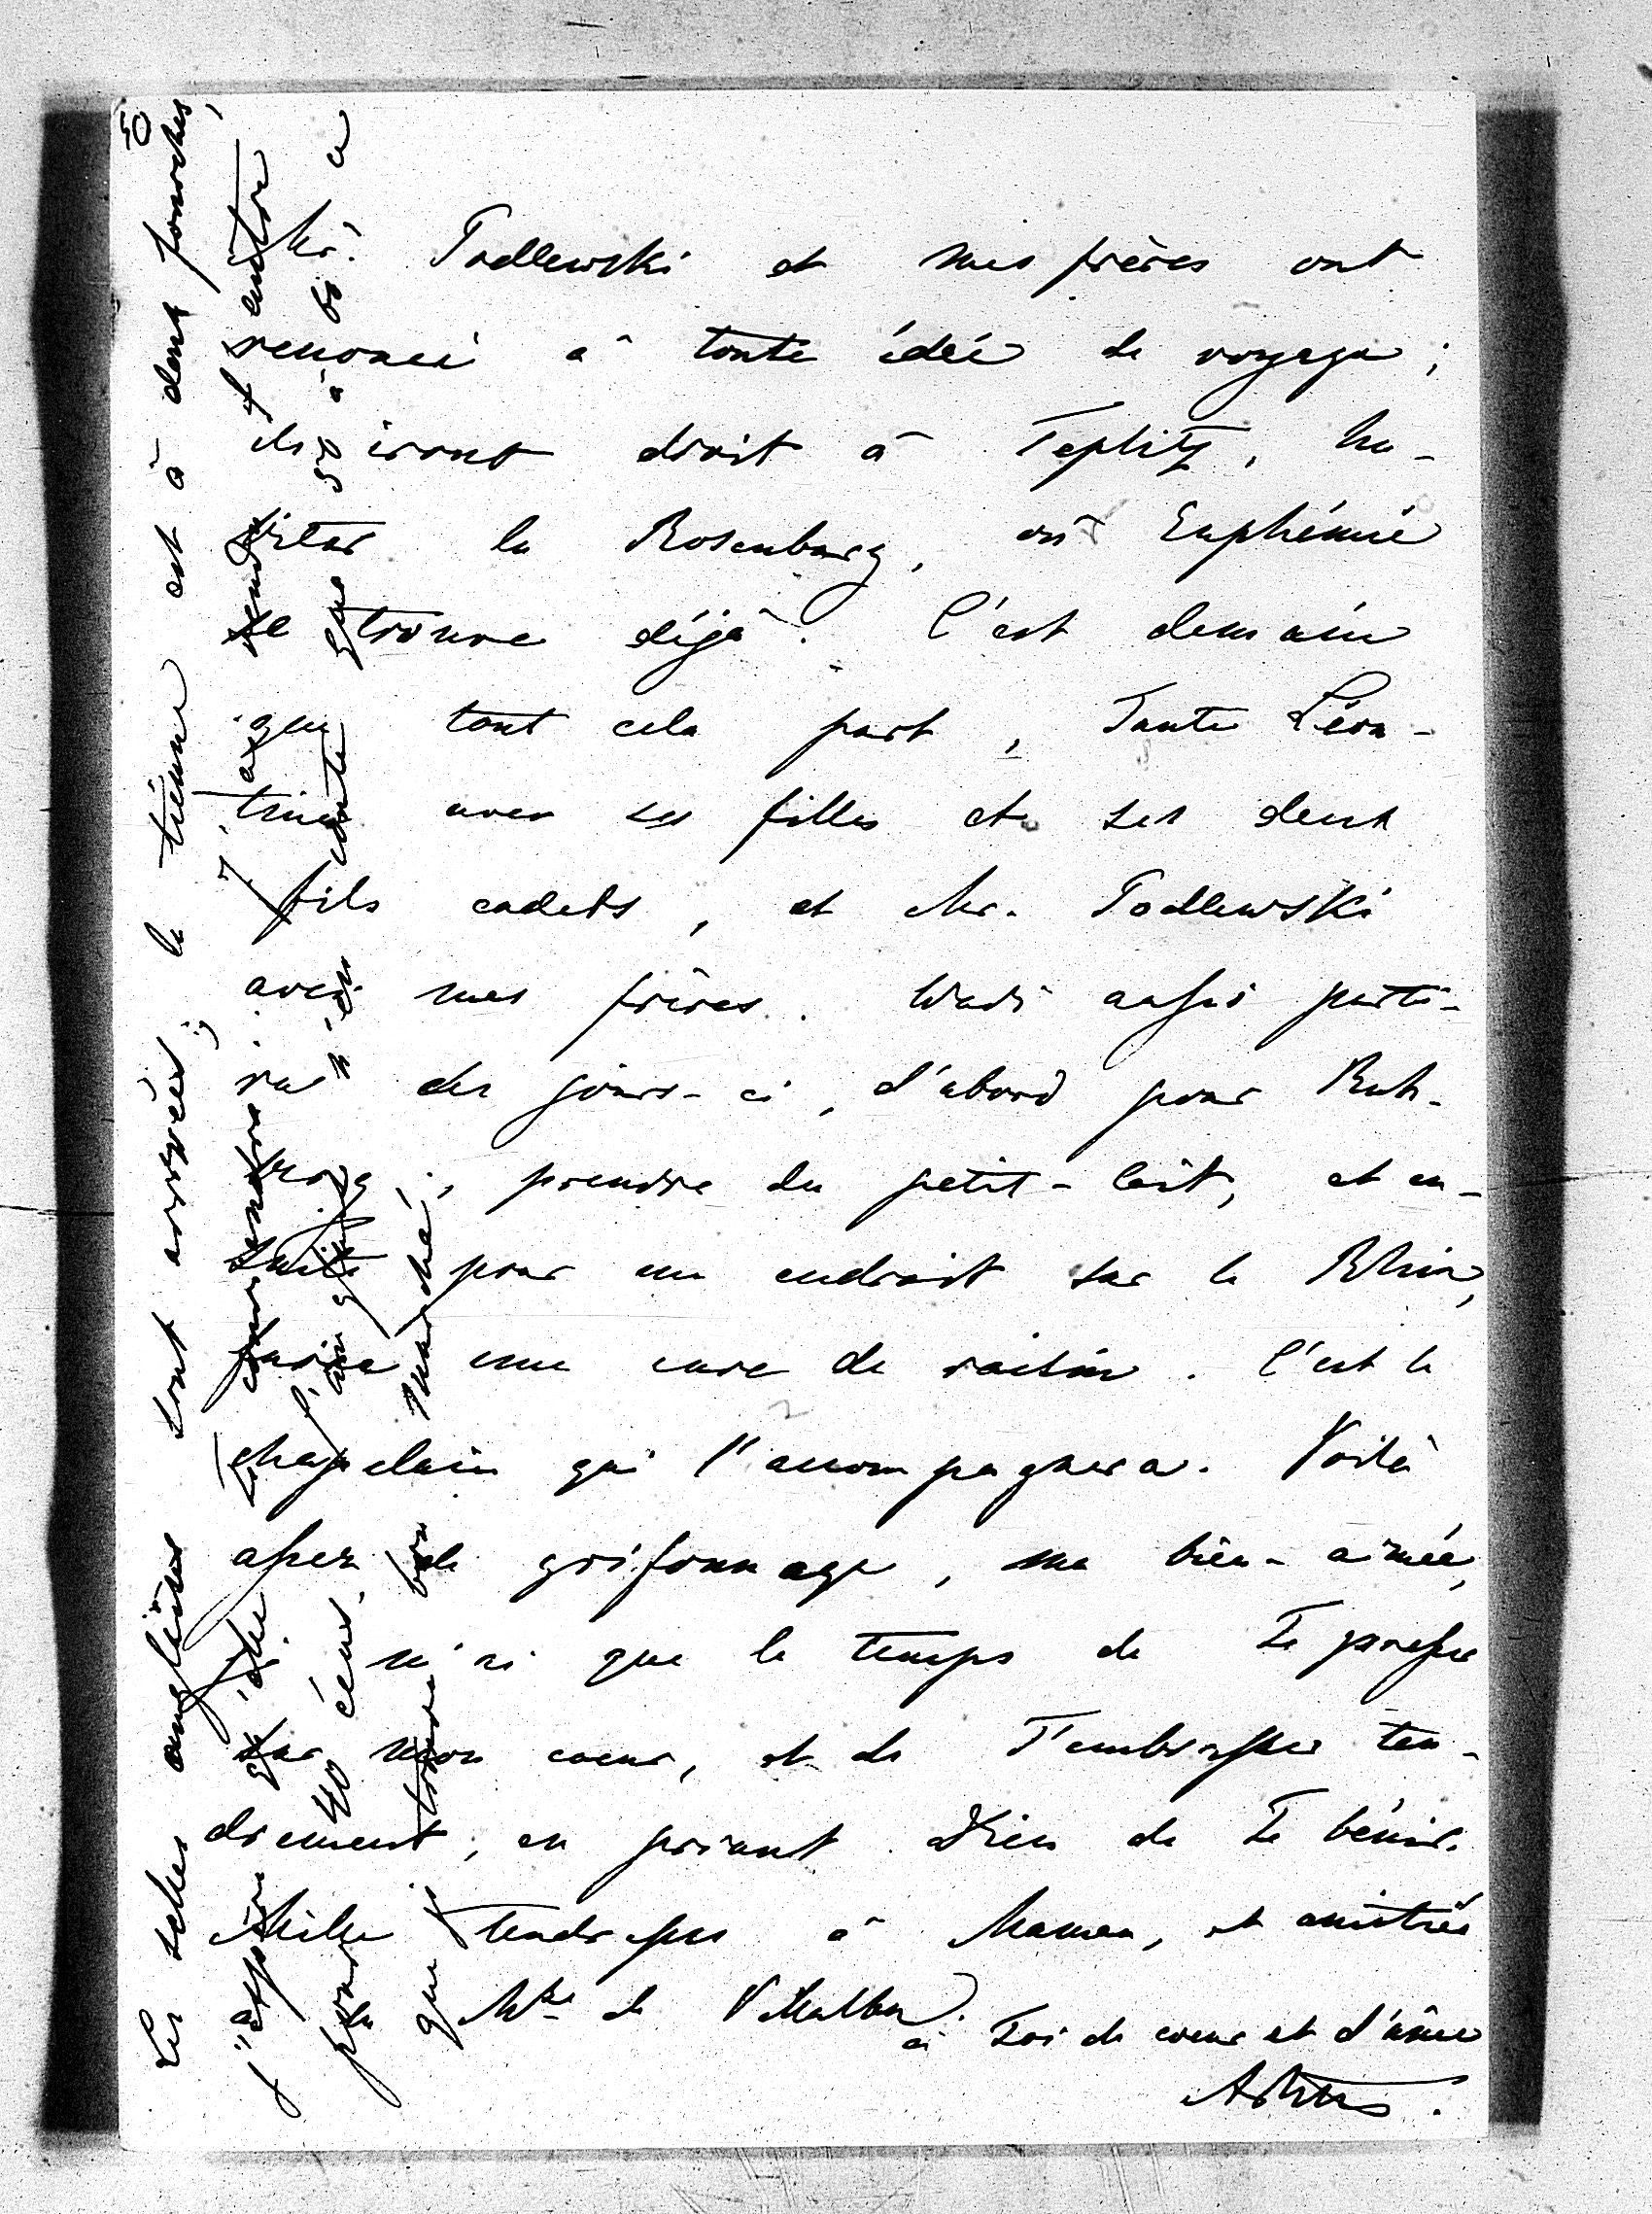 Mr. Podlewski et mes frères ont
renoncé à toute idée de voyage ;
ils iront droit à Teplitz, ha-
biter la Rosenburg, où Euphémie
se trouve déjà. C'est demain
que tout cela part, Tante Léon-
tine avec ses filles et ses deux
fils cadets, et Mr. Podlewski
avec mes frères. aussi parti-
ra ces jours-ci, d'abord pour Ruh-
berg, prendre du petit-lait, et en-
suite pour un endroit sur le Rhin,
faire une cure de raisin. C'est le
chapelain qui l'accompagnera. Voilà
assez de grifonnage, ma bien-aimée,
je n'ai que le temps de Te presser
sur mon coeur, et de T'embrasser ten-
drement, en priant Dieu de Te bénir.
Mille tendresses à Maman, et amitiés
à Mme de
à Toi de coeur et d'âme
Arthur.
Les selles anglaises sont arrivées ; la tienne est à deux fourches,
j'espère qu'elle Te conviendra. J'ai vendu l'autre
pour 40 écus, n'en coûte que 50 à 60 ce
que je trouve bon marché.